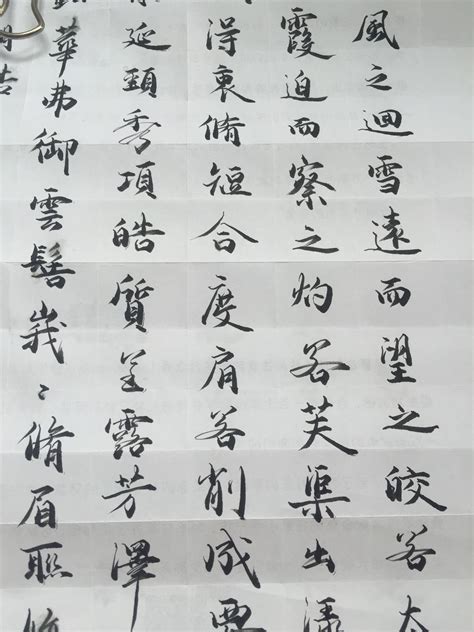 風之迴雪遠而望之皎若
霞迫而察之灼若芙渠出
得衷脩短合度肩若削成
延頸秀項皓質呈露芳澤
華弗御雲髻峩〻脩眉聯